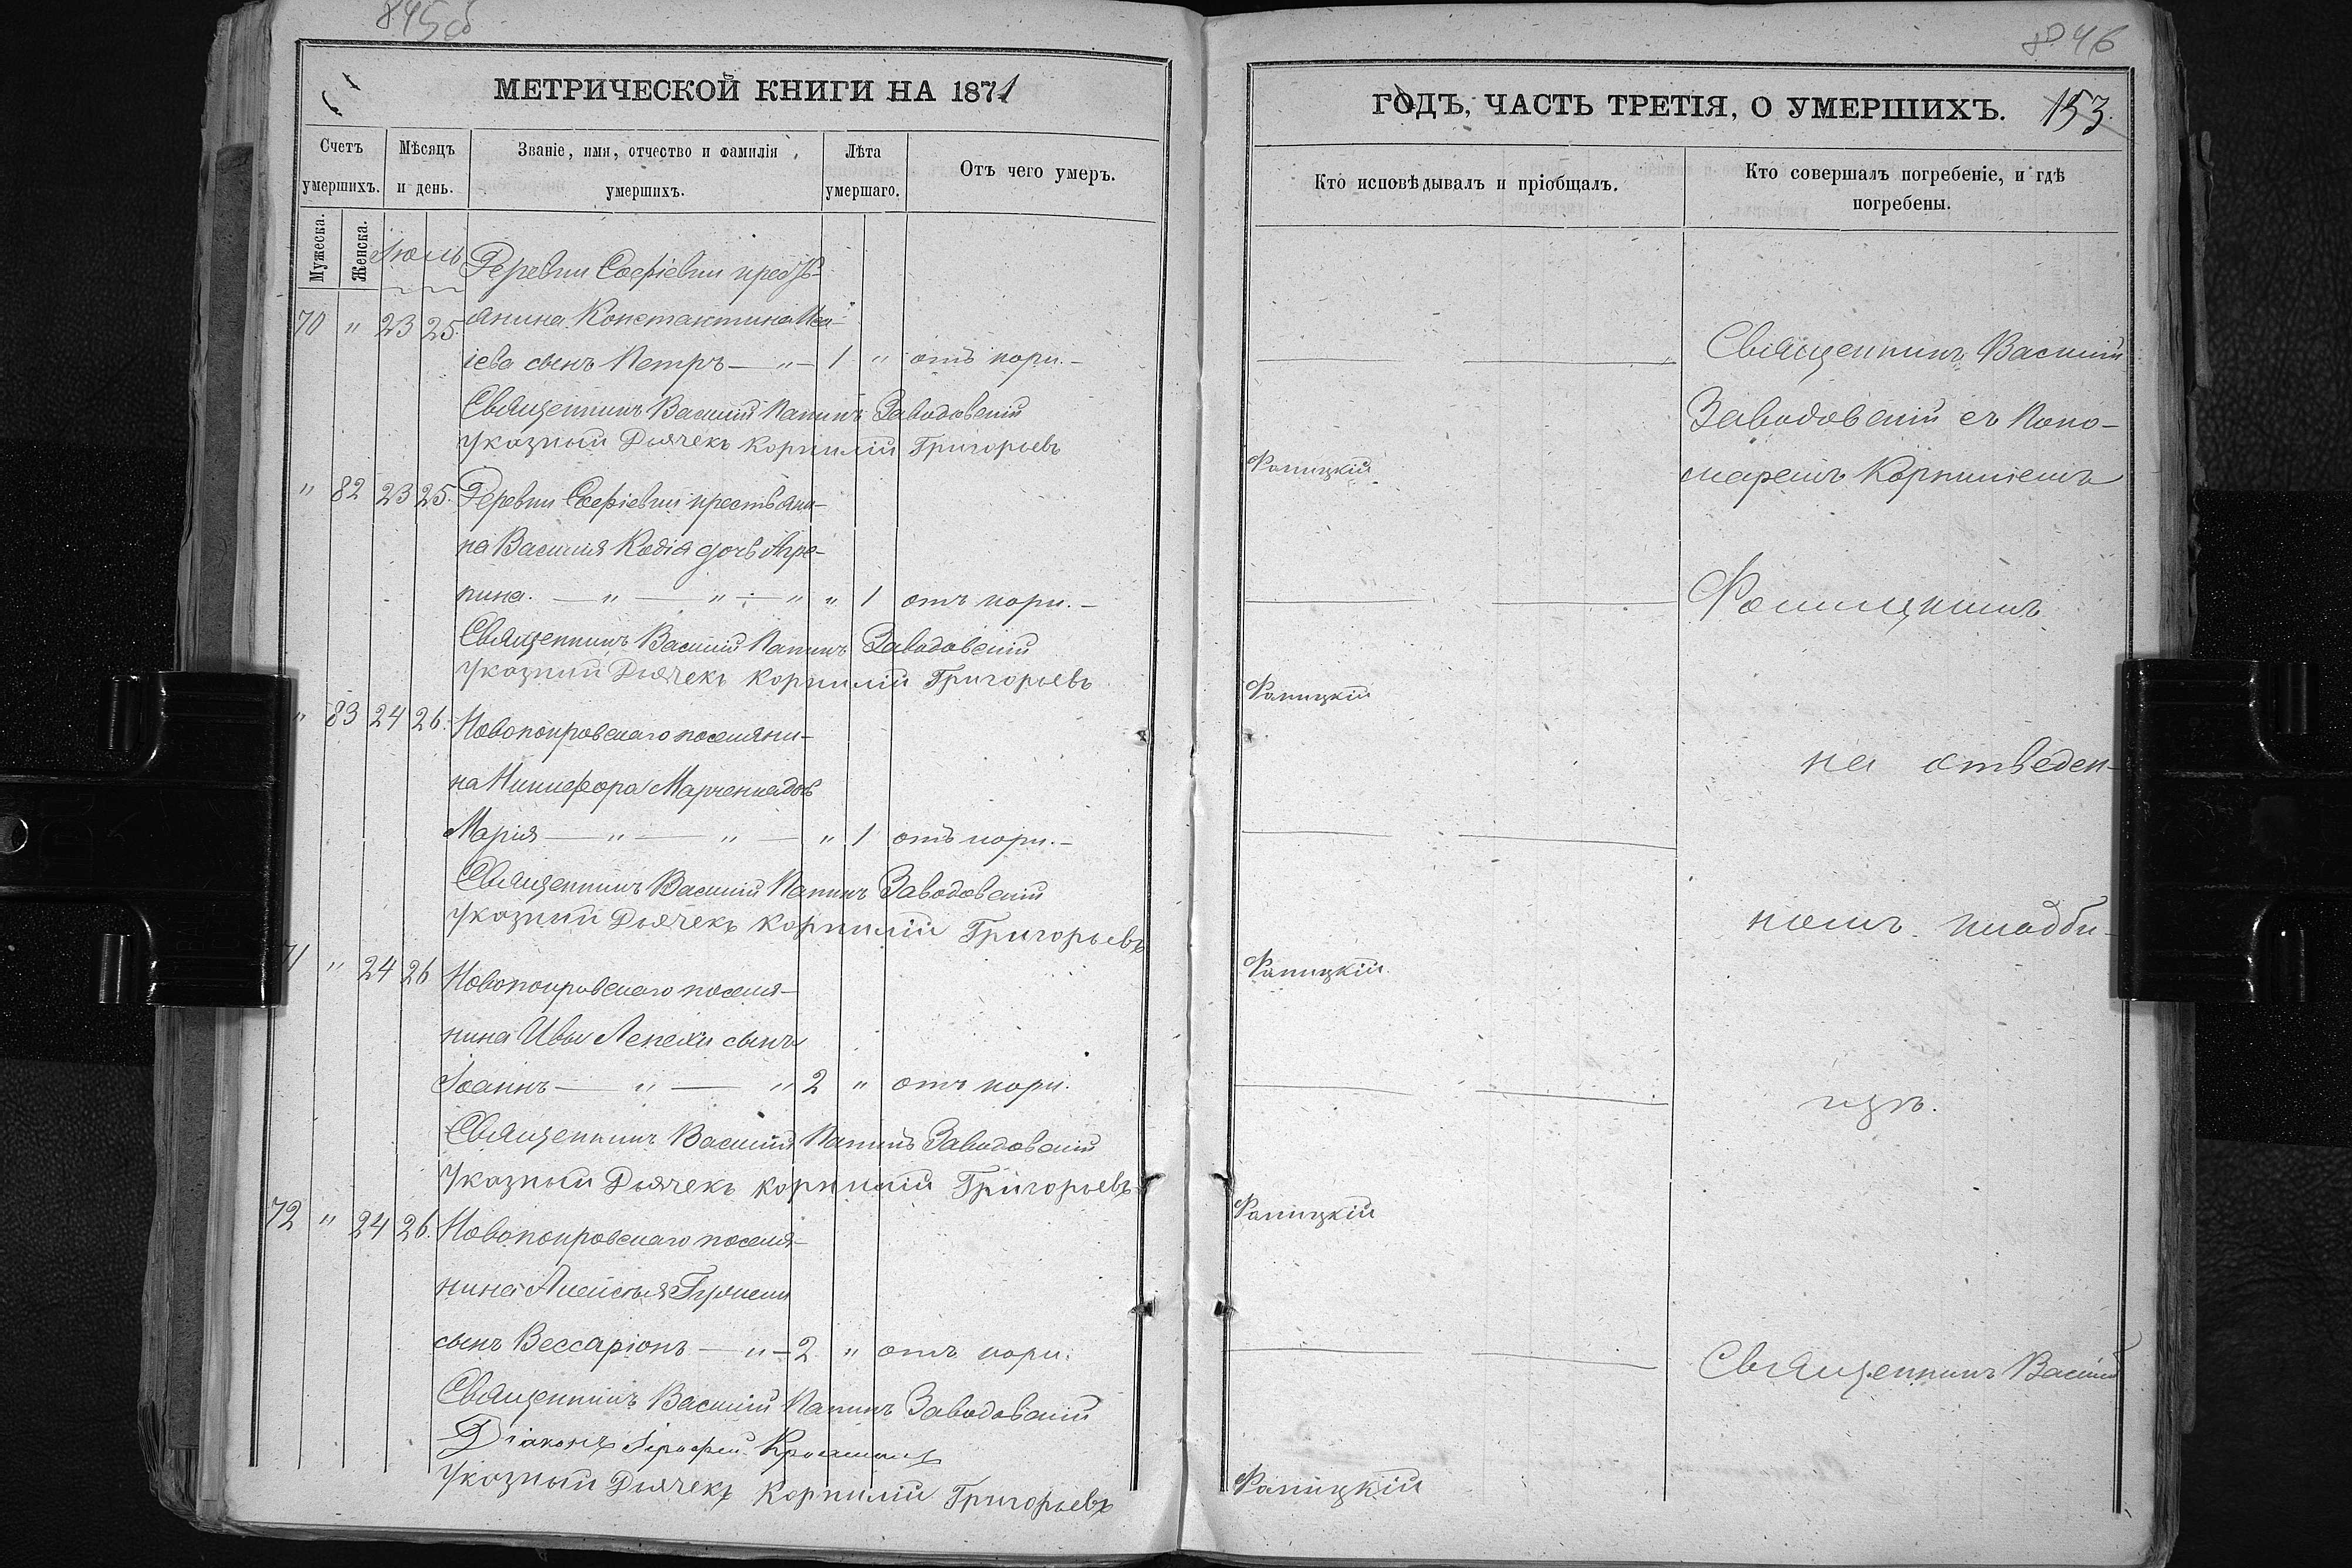 845об
МЕТРИЧЕСКОЙ КНИГИ НА 1871
Счетъ умершихъ.
Мѣсяцъ и день.
Званіе, имя, отчество и фамилія умершихъ.
Лѣта умершаго.
Отъ чего умеръ.
Мужеска.
Женска.
Іюль
Деревни Софіевки кресть-
70 " 23 25. янина Константина
іева сынъ Петръ — " — 1 " отъ кори. —
Священникъ Василій Папинъ Заводовскій
Указный Дьячекъ Корнилій Григорьевъ
" 82 23 25. Деревни Софіевки крестьяни-
на Василія Кодія дочь Агре-
пина. — " — " — " " 1 отъ кори. —
Священникъ Василій Папинъ Заводовскій
Указный Дьячекъ Корнилій Григорьевъ
" 83 24 26. Новопокровскаго поселяни-
на Никифора Марченка дочь
Марія — " — " — " 1 отъ кори. —
Священникъ Василій Папинъ Заводовскій
Указный Дьячекъ Корнилій Григорьевъ
71 " 24 26 Новопокровскаго поселя-
нина Ивы Лепехи сынъ
Іоаннъ — " — " 2 " отъ кори.
Священникъ Василій Папинъ Заводовскій
Указный Дьячекъ Корнилій Григорьевъ
72 " 24 26. Новопокровскаго поселя-
нина Алексѣя
сынъ Вессаріонъ — " — 2 " отъ кори.
Священникъ Василій Папинъ Заводовскій
Діаконъ
Указный Дьячекъ Корнилій Григорьевъ
846
ГОДЪ, ЧАСТЬ ТРЕТІЯ, О УМЕРШИХЪ.
153.
Кто исповѣдывалъ и пріобщалъ.
Кто совершалъ погребеніе, и гдѣ погребены.
Священникъ Василій
Заводовскій съ Поно-
маремъ Корниліемъ
Фаницкій
Фаницкимъ
Фаницкій
на отведен-
номъ кладби-
Фаницкій
щѣ.
Фаницкій
Священникъ Василій
Фаницкій